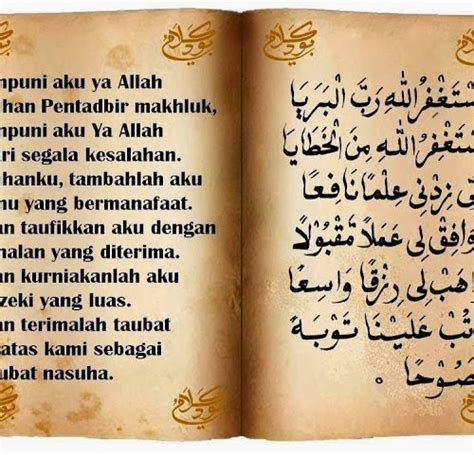 npuni aku ya Allah
han Pentadbir makhluk,
npuni aku Ya Allah
ri segala kesalahan.
hanku, tambahlah aku
nu yang bermanafaat.
an taufikkan aku dengan
nalan yang diterima.
an kurniakanlah aku
zeki yang luas.
an terimalah taubat
atas kami sebagai
ubat nasuha.
ستَغْفِرُ اللهَ رَبَّ الْبَرَايَا
ستَغْفِرُ اللهَ مِنَ الْخَطَايَا
بِّ زِدْنِي عِلْمًا نَافِعًا
وَافِقْ لِي عَمَلًا مَقْبُولًا
اهَبْ لِي رِزْقًا وَاسِعًا
اتُبْ عَلَيْنَا تَوْبَةً
صُوْحًا .